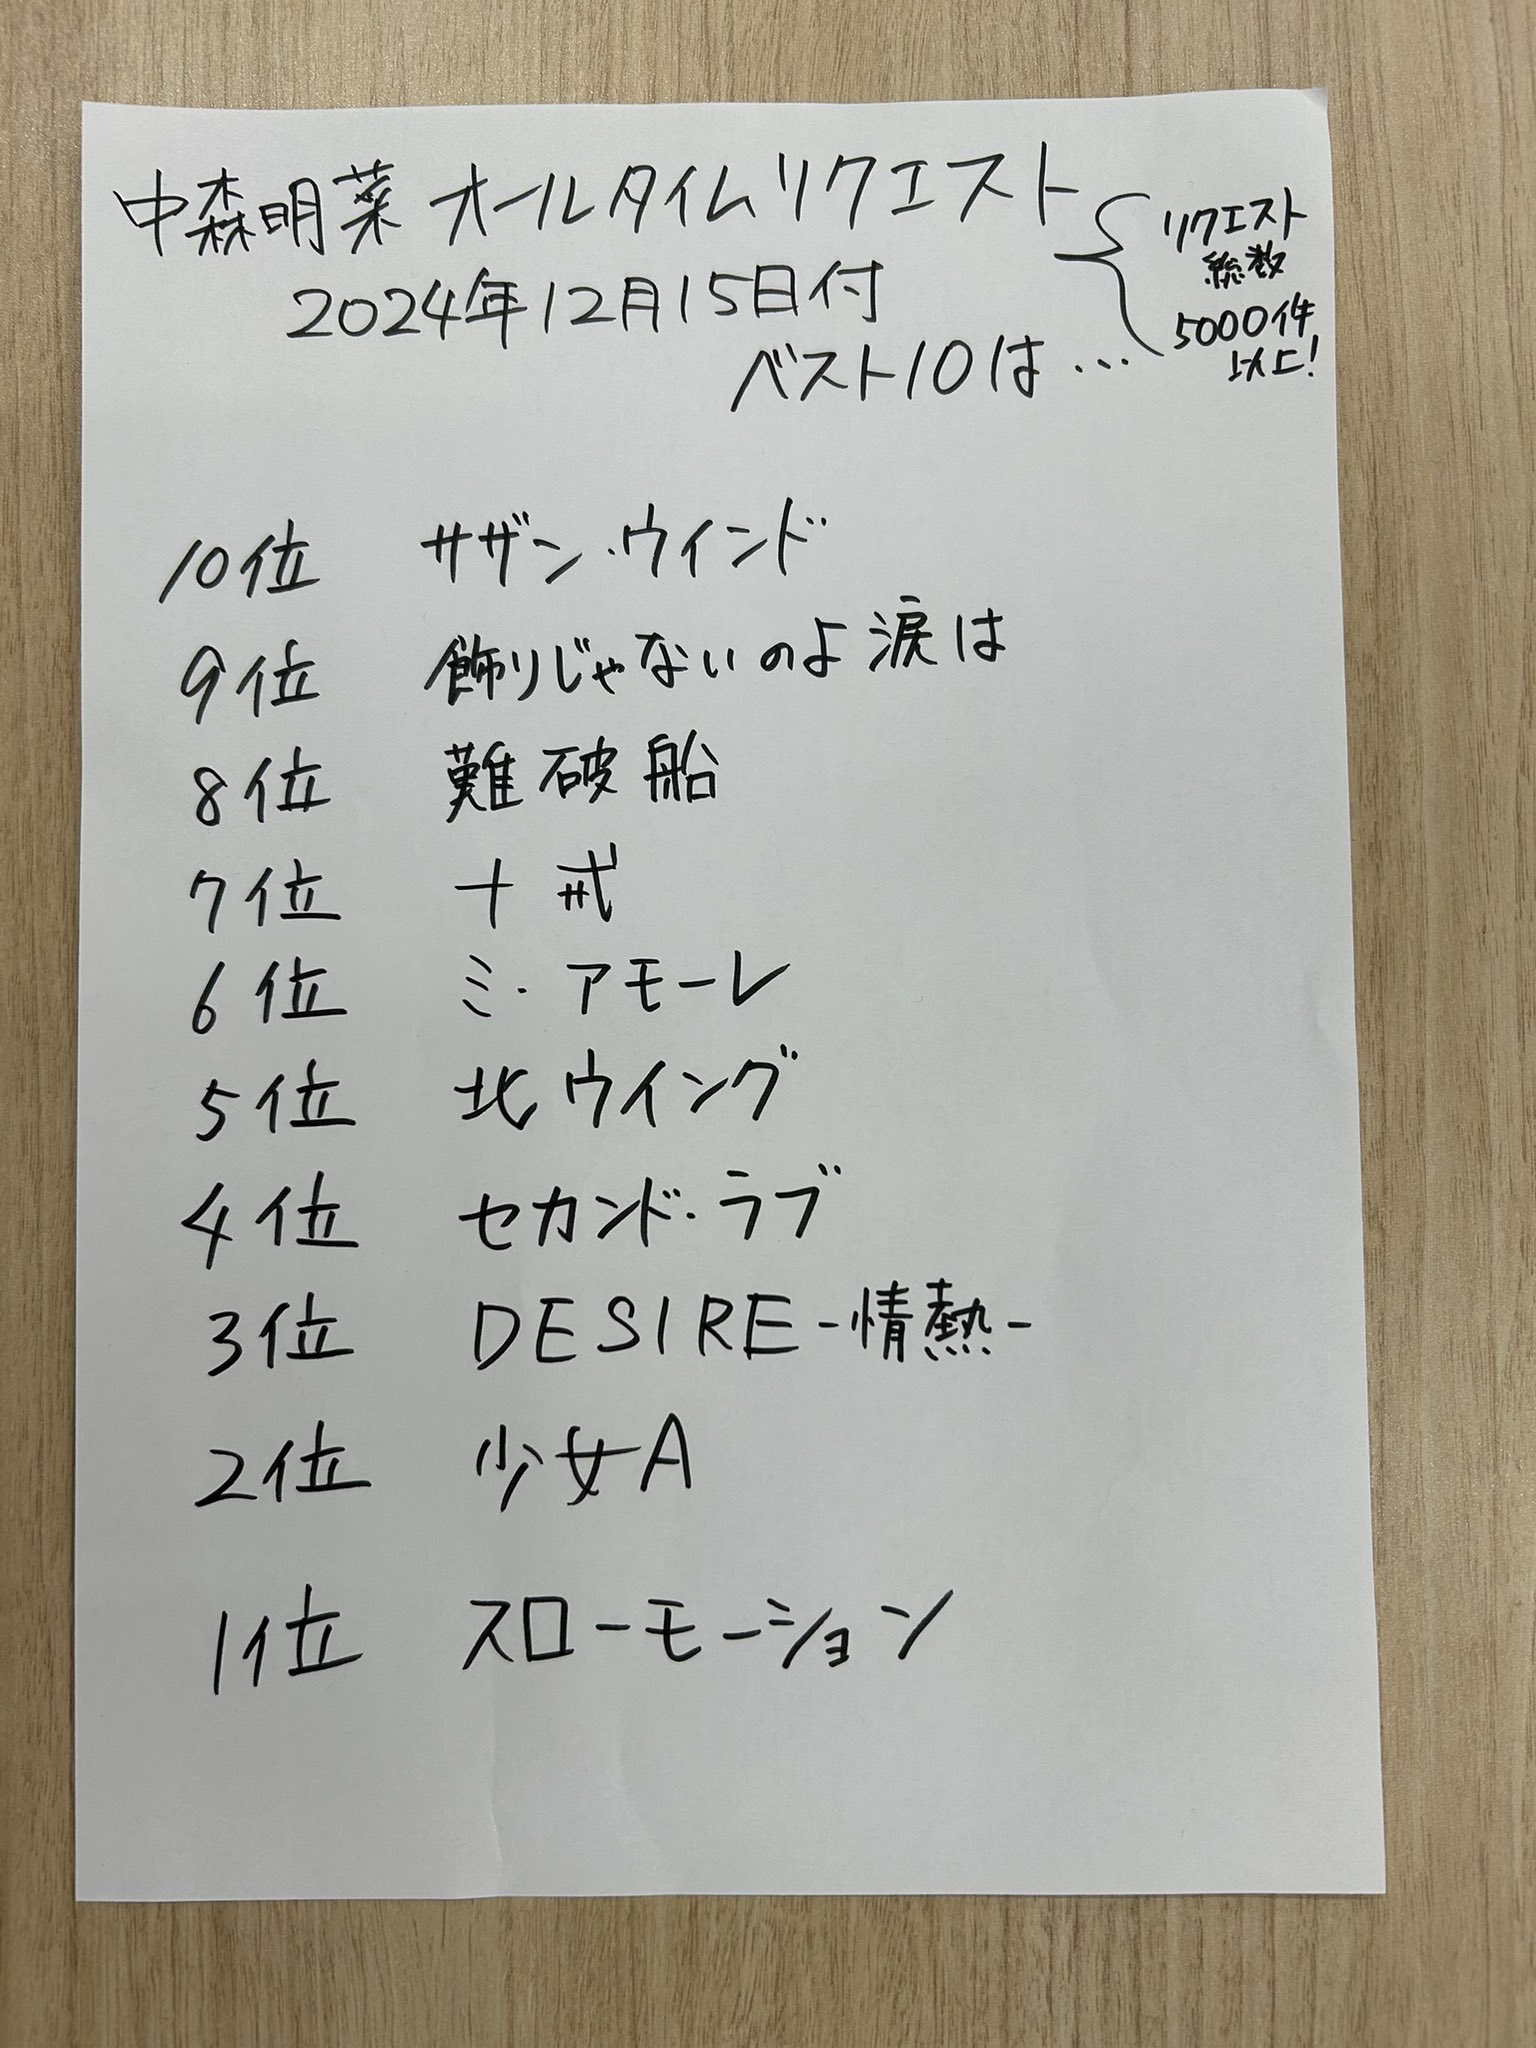 中森明菜 オールタイムリクエスト
2024年12月15日付
ベスト10は…
リクエスト
総数
5000件
以上!
10位 サザン・ウインド
9位 飾りじゃないのよ涙は
8位 難破船
7位 十戒
6位 ミ・アモーレ
5位 北ウイング
4位 セカンド・ラブ
3位 DESIRE-情熱-
2位 少女A
1位 スローモーション